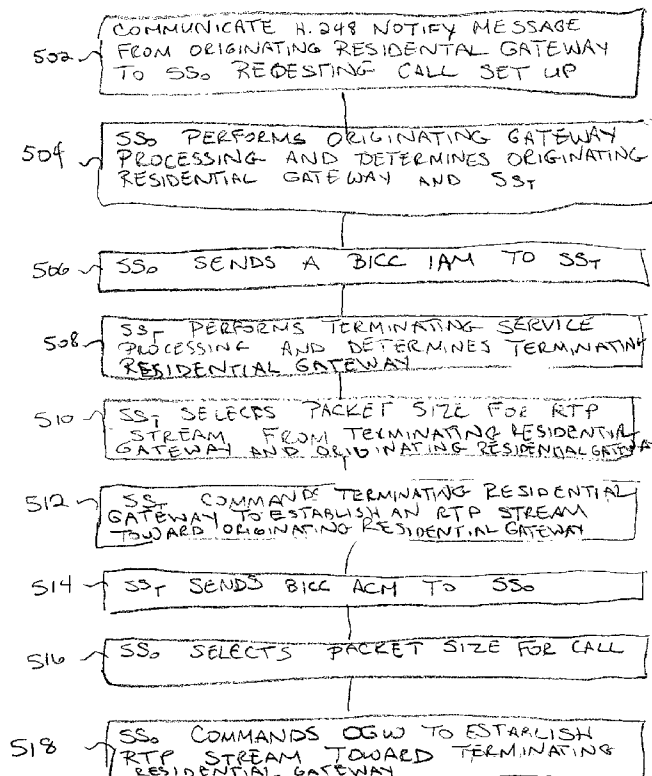 COMMUNICATE H.248 NOTIFY MESSAGE
502 FROM ORIGINATING RESIDENTAL GATEWAY
TO SSO REQESTING CALL SET UP
504 SSO PERFORMS ORIGINATING GATEWAY
PROCESSING AND DETERMINES ORIGINATING
RESIDENTIAL GATEWAY AND SST
506 SSO SENDS A BICC IAM TO SST
508 SST PERFORMS TERMINATING SERVICE
PROCESSING AND DETERMINES TERMINATING
RESIDENTIAL GATEWAY
510 SST SELECTS PACKET SIZE FOR RTP
STREAM FROM TERMINATING RESIDENTIAL
GATEWAY AND ORIGINATING RESIDENTIAL GATEWA
512 SST COMMANDS TERMINATING RESIDENTIAL
GATEWAY TO ESTABLISH AN RTP STREAM
TOWARD ORIGINATING RESIDENTIAL GATEWAY
514 SST SENDS BICC ACM TO SSO
516 SSO SELECTS PACKET SIZE FOR CALL
518 SSO COMMANDS OGW TO ESTABLISH
RTP STREAM TOWARD TERMINATING
RESIDENTIAL GATEWAY